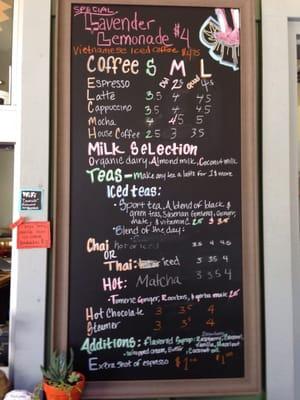 SPECIAL
Lavender
Lemonade $4
Vietnamese Iced coffee
Coffee S M L
Espresso
Latte 3.5 4 4.5
Cappuccino 3.5 4 4.5
Mocha 4 4.5 5
House Coffee 2.5 3 3.5
Milk Selection
Organic dairy, Almond milk, Coconut milk
Teas- Make any tea a latte for $1 more
Iced teas:
• Sport tea, A blend of black &
green teas, Siberian Ginseng, Ginger,
mate, & vitamin C 2.5 3 3.5
• Blend of the day:
Chai hot or iced 3.5 4 4.5
OR
Thai: iced 3 3.5 4
Hot: Matcha 3 3.5 4
• Tumeric Ginger, Rooibos, & yerba mate 2.5
Hot Chocolate 3 3.5 4
Steamer 3 3.5 4
Additions: Flavored Syrup:
Whipped cream, Butter, Coconut oil
Extra shot of espresso $1.00